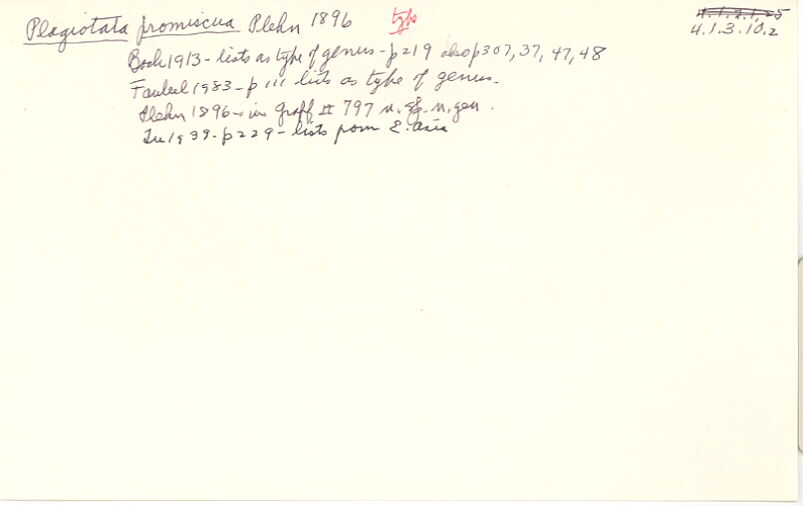 Plagiotata promiscua Plehn 1896 type
4.1.2.1.25
4.1.3.10.2
Bock 1913 - lists as type of genus - p 219 also p 307, 37, 47, 48
Faubel 1983 - p 111 lists as type of genus.
Plehn 1896 - in Graff II 797 n. sp. n. gen.
1939 - p 229 - lists from E. Asia